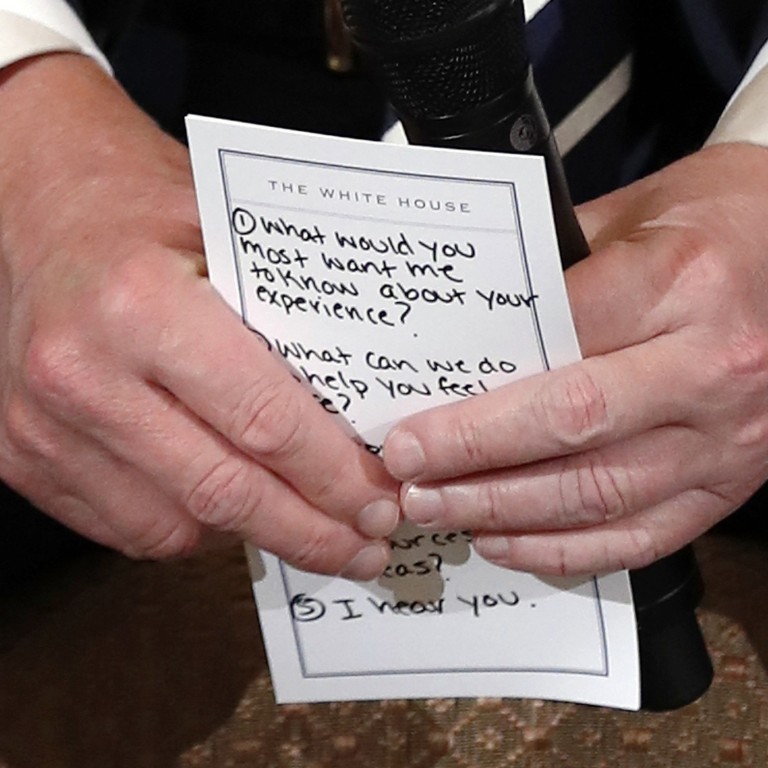 THE WHITE HOUSE
① What would you
most want me
to know about your
experience?
What can we do
help you feel
e?
eas?
⑤ I hear you.